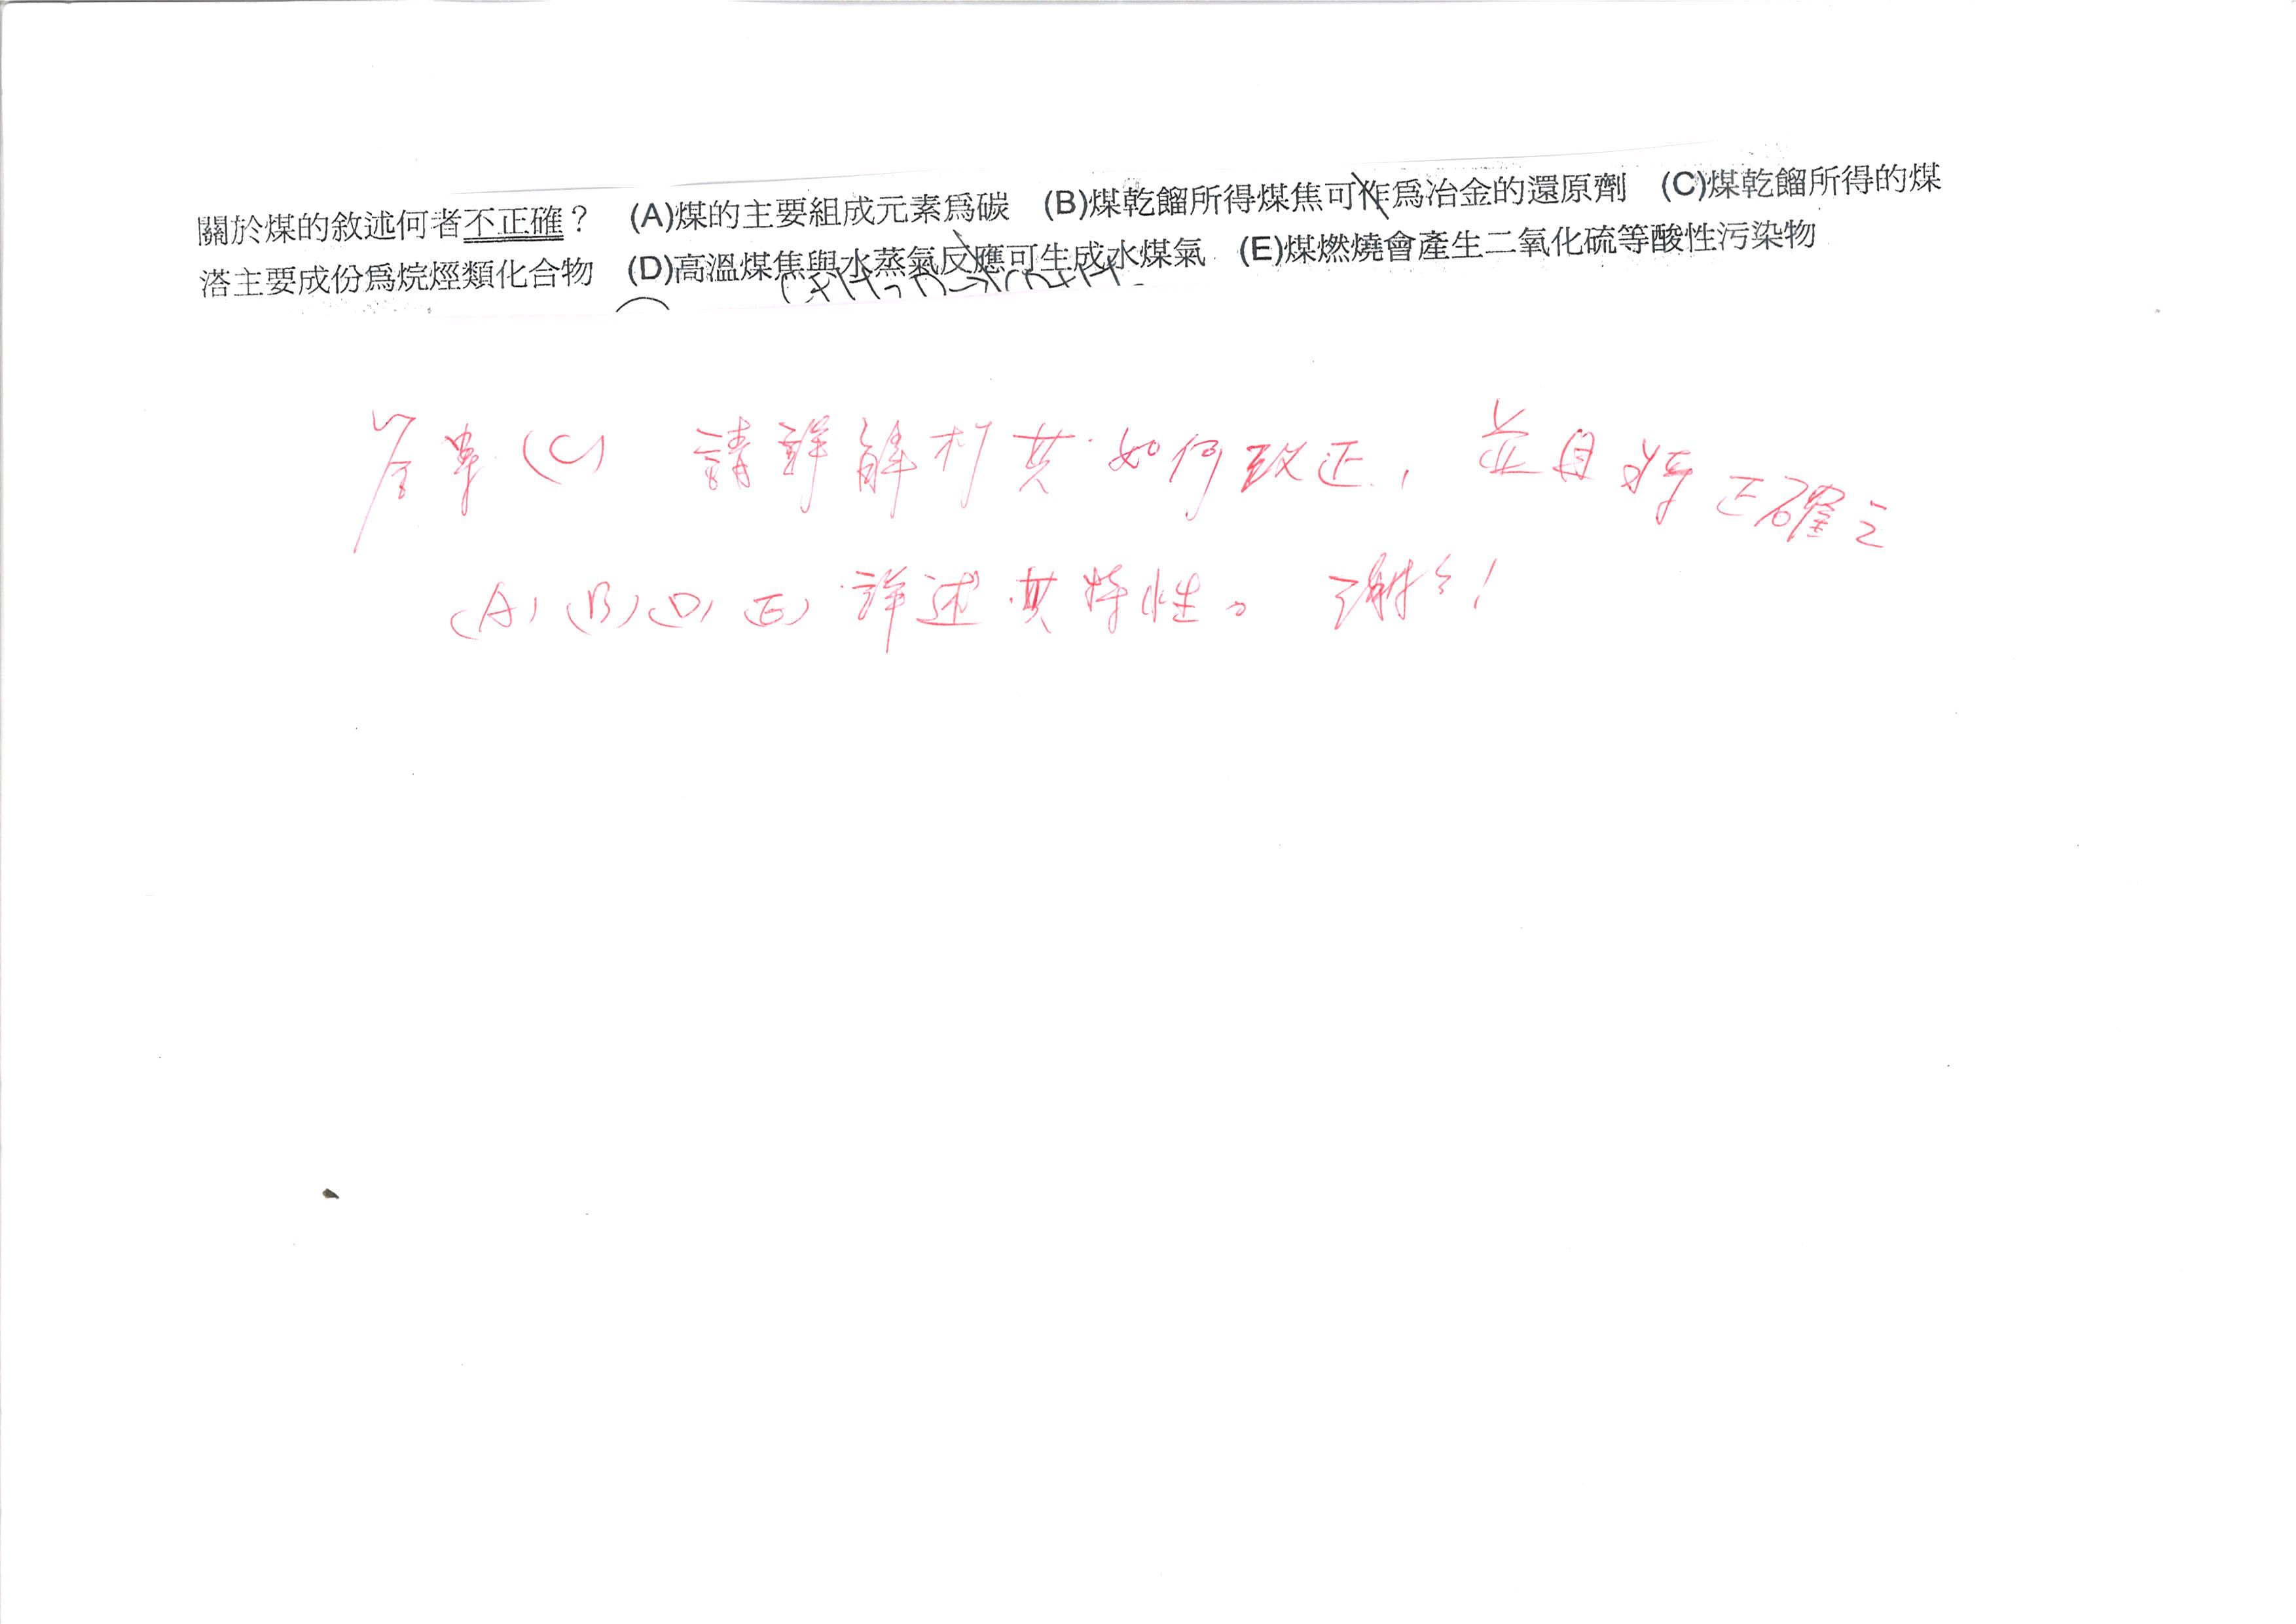 關於煤的敘述何者不正確？ (A)煤的主要組成元素爲碳 (B)煤乾餾所得煤焦可作爲冶金的還原劑 (C)煤乾餾所得的煤
溚主要成份爲烷烴類化合物 (D)高溫煤焦與水蒸氣反應可生成水煤氣 (E)煤燃燒會產生二氧化硫等酸性污染物
C+H2O→CO+H2
答案(C) 請詳解析其如何改正，並且將正確之
(A)(B)(D)(E)詳述其特性。謝謝！